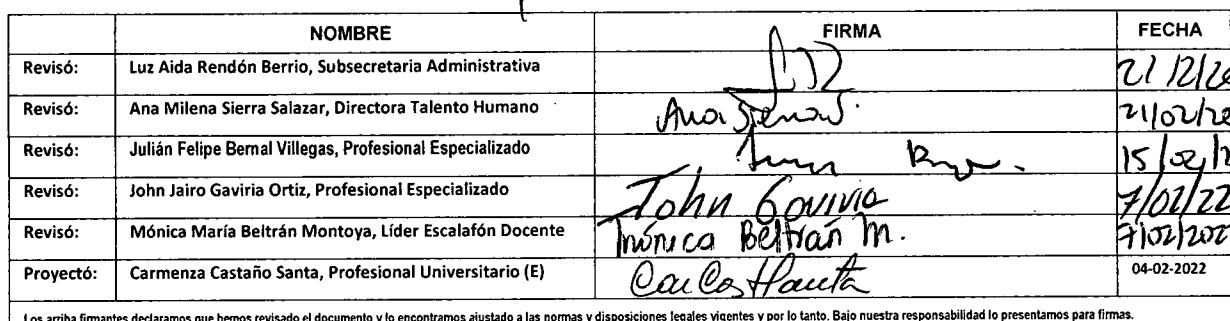 NOMBRE FIRMA FECHA
Revisó: Luz Aida Rendón Berrio, Subsecretaria Administrativa
Revisó: Ana Milena Sierra Salazar, Directora Talento Humano 21/02/
Revisó: Julián Felipe Bernal Villegas, Profesional Especializado 15/02/
Revisó: John Jairo Gaviria Ortiz, Profesional Especializado John Gaviria 7/02/22
Revisó: Mónica María Beltrán Montoya, Líder Escalafón Docente Mónica Beltrán M. 7/02/202
Proyectó: Carmenza Castaño Santa, Profesional Universitario (E) 04-02-2022
Los arriba firmantes declaramos que hemos revisado el documento y lo encontramos ajustado a las normas y disposiciones legales vigentes y por lo tanto. Bajo nuestra responsabilidad lo presentamos para firmas.